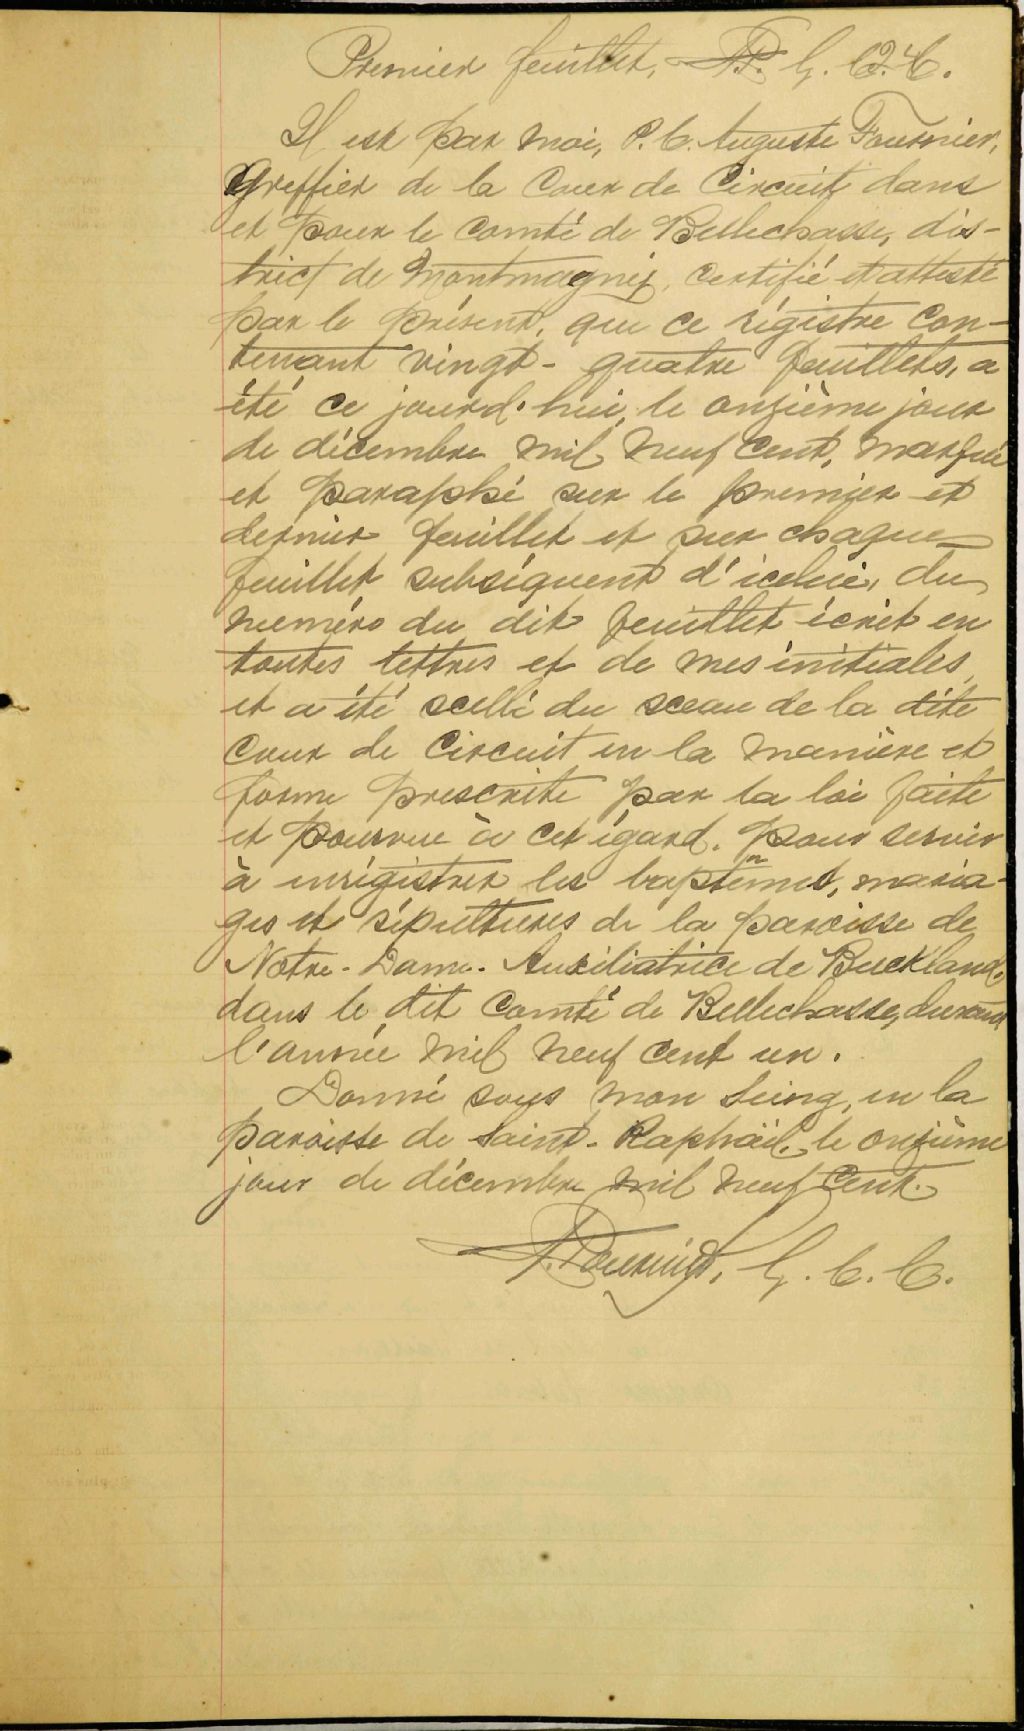 Premier feuillet, G. C. C.
Il est par moi, P. C. Auguste Fournier,
Greffier de la Cour de Circuit dans
et pour le Comté de Bellechasse, dis-
trict de Montmagny, certifié et attesté
par le présent, que ce régistre con-
tenant vingt-quatre feuillets, a
été ce jourd'hui, le onzième jour
de décembre mil neuf cent, marqué
et paraphé sur le premier et
dernier feuillet et sur chaque
feuillet subséquent d'icelui, du
numéro du dit feuillet écrit en
toutes lettres et de mes initiales,
et a été scellé du sceau de la dite
Cour de Circuit en la manière et
forme prescrite par la loi faite
et pourvue à cet égard, pour servir
à enrégistrer les baptêmes, maria-
ges et sépultures de la paroisse de
Notre-Dame-Auxiliatrice de Buckland,
dans le dit Comté de Bellechasse, durant
l'année mil neuf cent un.
Donné sous mon Seing, en la
paroisse de Saint-Raphaël, le onzième
jour de décembre mil neuf cent.
A. Fournier, G. C. C.